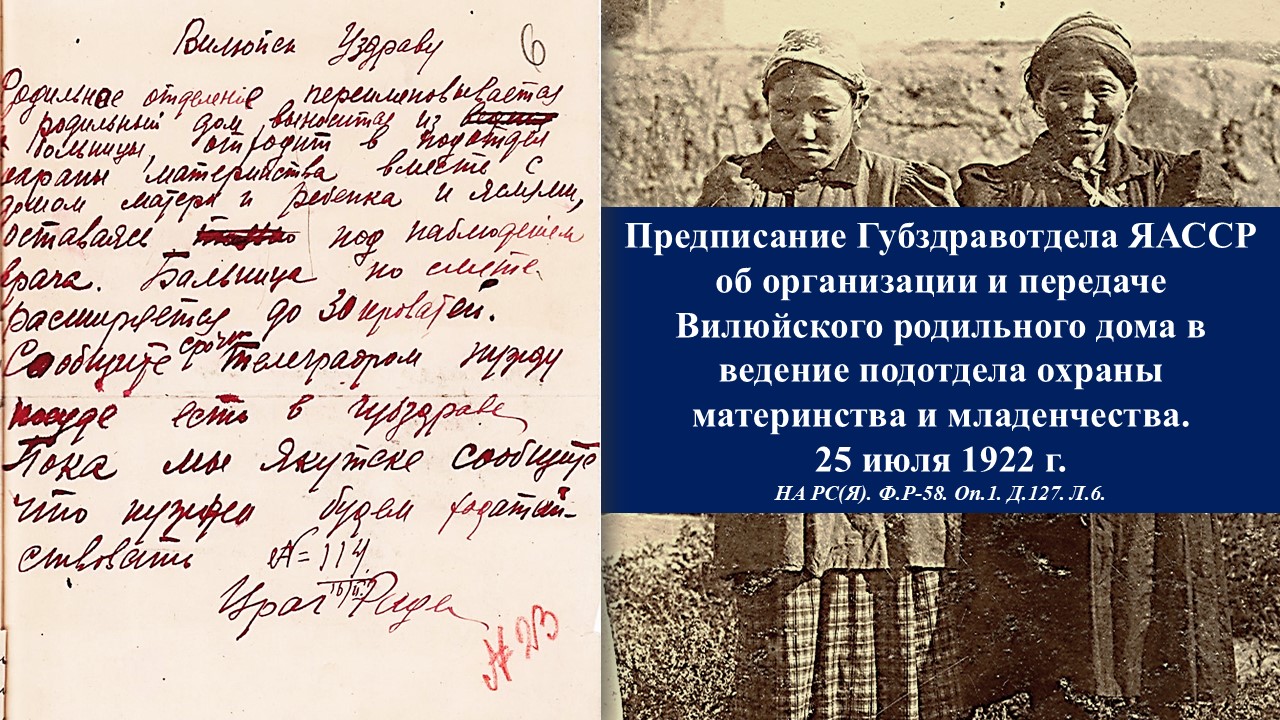 Вилюйск Уздраву
6
Родильное отделение переименовывается
в родильный дом выносится из
больницы, отходит в подотдел
охраны материнства вместе с
домом матери и ребенка и яслями,
оставаясь под наблюдением
врача. Бальница по смете
расширяется до 30 кроватей.
Сообщите срочно телеграфом нужду
посуде есть в губздраве
Пока мы Якутске сообщите
что нужен будем ходатай-
ствовать №=114
№23
Предписание Губздравотдела ЯАССР
об организации и передаче
Вилюйского родильного дома в
ведение подотдела охраны
материнства и младенчества.
25 июля 1922 г.
НА РС(Я). Ф.Р-58. Оп.1. Д.127. Л.6.